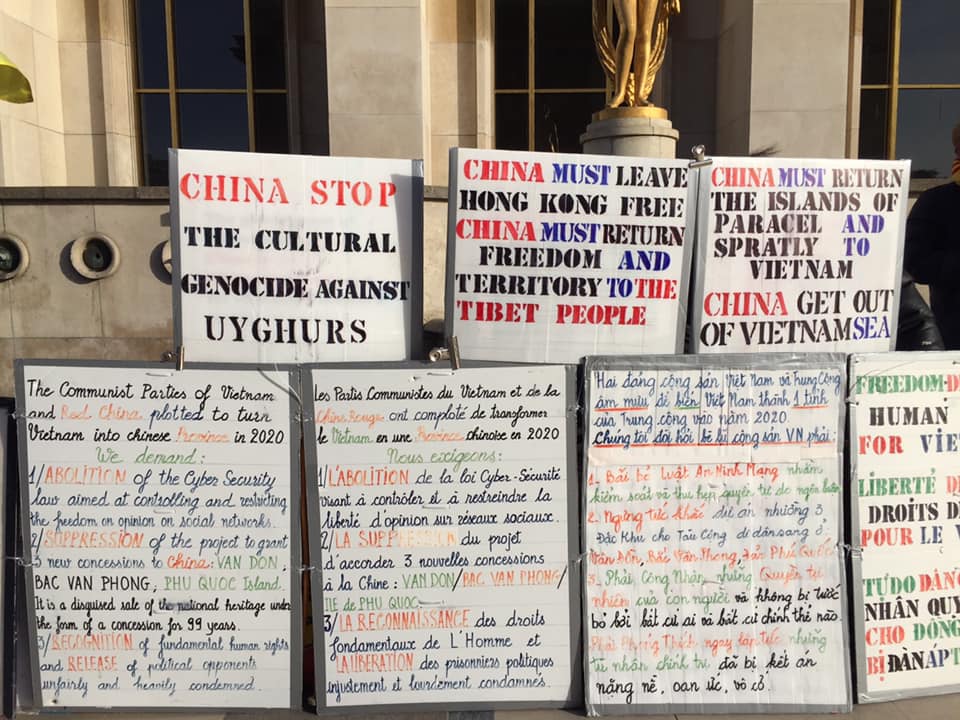 CHINA STOP
THE CULTURAL
GENOCIDE AGAINST
UYGHURS
CHINA MUST LEAVE
HONG KONG FREE
CHINA MUST RETURN
FREEDOM AND
TERRITORY TO THE
TIBET PEOPLE
CHINA MUST RETURN
THE ISLANDS OF
PARACEL AND
SPRATLY TO
VIETNAM
CHINA GET OUT
OF VIETNAM SEA
The Communist Parties of Vietnam
and Red China plotted to turn
Vietnam into chinese Province in 2020
We demand:
1/ABOLITION of the Cyber Security
law aimed at controlling and restricting
the freedom on opinion on social networks.
2/SUPPRESSION of the project to grant
3 new concessions to China: VAN DON,
BAC VAN PHONG, PHU QUOC Island.
It is a disguised sale of the national heritage under
the form of a concession for 99 years.
3/RECOGNITION of fundamental human rights
and RELEASE of political opponents
unfairly and heavily condemned.
Les Partis Communistes du Vietnam et de la
Chine Rouge ont comploté de transformer
le Vietnam en une Province chinoise en 2020
Nous exigeons:
1/L'ABOLITION de la loi Cyber-Sécurité
visant à contrôler et à restreindre la
liberté d'opinion sur réseaux sociaux.
2/LA SUPPRESSION du projet
d'accorder 3 nouvelles concessions
à la Chine: VAN DON/BAC VAN PHONG/
ILE de PHU QUOC
3/LA RECONNAISSANCE des droits
fondamentaux de L'Homme et
LA LIBERATION des prisonniers politiques
injustement et lourdement condamnés.
Hai đảng cộng sản Việt Nam và Trung Cộng
âm mưu để biến Việt Nam thành 1 tỉnh
của Trung cộng vào năm 2020.
Chúng tôi đòi hỏi bè lũ cộng sản VN phải:
1. Bãi bỏ Luật An Ninh Mạng nhằm
kiểm soát và thu hẹp quyền tự do ngôn luận
2. Ngưng tức khắc dự án nhượng 3
Đặc Khu cho Tàu Cộng di dân sang ở
Vân Đồn, Bắc Vân Phong, Phú Quốc
3. Phải Công Nhận những Quyền tự
nhiên của con người và không bị tước
bỏ bởi bất cứ ai và bất cứ chính thể nào.
Phải Phóng Thích ngay lập tức những
tù nhân chính trị đã bị kết án
nặng nề, oan ức, vô cớ.
FREEDOM
HUMAN
FOR
LIBERTÉ
DROITS
POUR LE
TỰ DO
NHÂN
CHO
BỊ ĐÀN ÁP